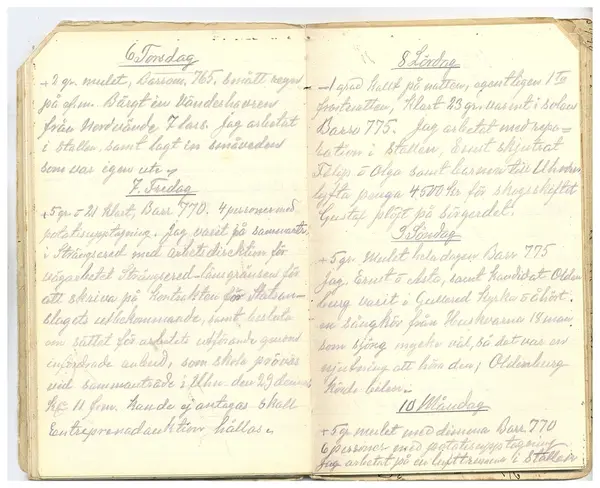 6 Torsdag
+2 gr. mulet, Barom. 765. Smått regn
på e.m. Bärgt in Vänderhavren
från Nordvände 7 lass. Jag arbetat
i Stallen, samt lagt in småveden
som var igen ute.
7. Fredag
+5 gr o 21 klart, Barr 770. 4 personer med
potatisupptagning. Jag varit på sammantr.
i Strängsered med arbetsdirektion för
vägarbetet Strängsered-länsgränsen för
att skriva på Kontrakten för Statsan-
slagets utbekommande, samt besluta
om sättet för arbetets utförande genom
infordrade anbud, som skola prövas
vid sammanträde i Ulr. den 29 dennes
kl. 11 fm. kunde ej antagas skall
Entreprenadauktion hållas.
8 Lördag
-1 grad kallt på natten, egentligen 1sta
frostnatten, Klart 23 gr. varmt i solen
Barro 775. Jag arbetet med repa=
ration i Stallen, Ernst skjutsat
Filip o Olga samt barnen till Ulr.
lyfta penga 4500 kr för skogsskiftet
Gustaf plöjt på sörgerdet.
9 Söndag
+5 gr. Mulet hela dagen Barr 775
Jag, Ernst o Asta, samt kandidat Olden-
burg varit i Gullered Kyrka o åhört
en sångkör från Huskvarna 18 man
som sjöng mycke väl, så det var en
njutning att höra den, Oldenburg
Körde bilen.
10 Måndag
+5 gr mulet med dimma Barr 770
6 personer med potatisupptagning
Jag arbetat på en lufttrumma i Stallen